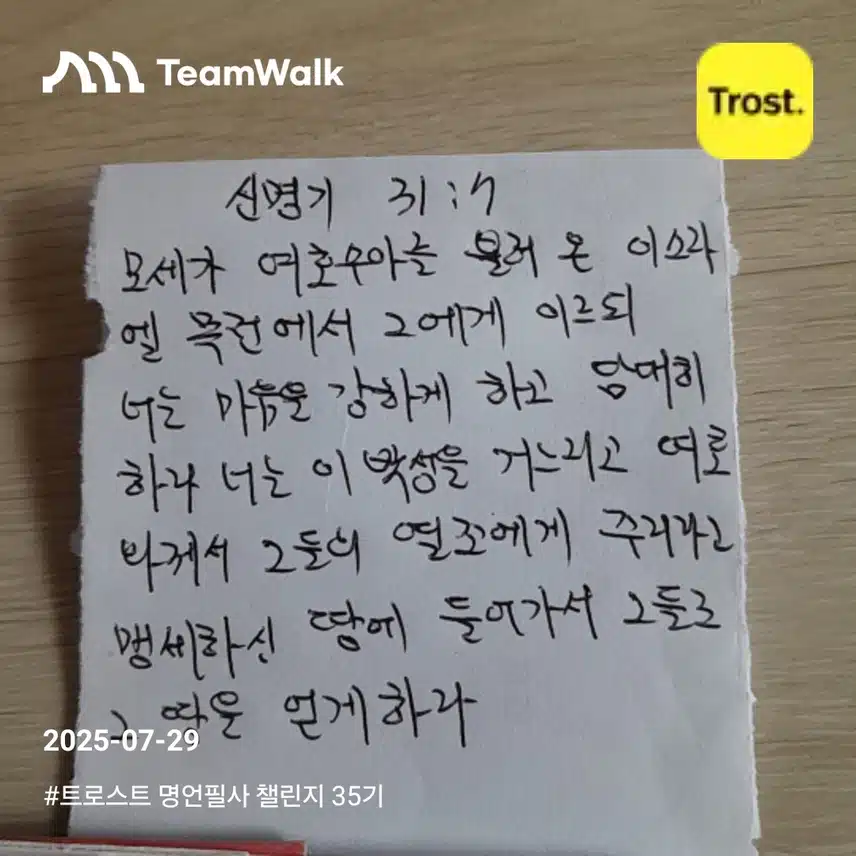 TeamWalk
Trost.
신명기 31:7
모세가 여호수아를 불러 온 이스라
엘 목전에서 그에게 이르되
너는 마음을 강하게 하고 담대히
하라 너는 이 백성을 거느리고 여호
와께서 그들의 열조에게 주리라고
맹세하신 땅에 들어가서 그들로
그 땅을 얻게하라
2025-07-29
#트로스트 명언필사 챌린지 35기